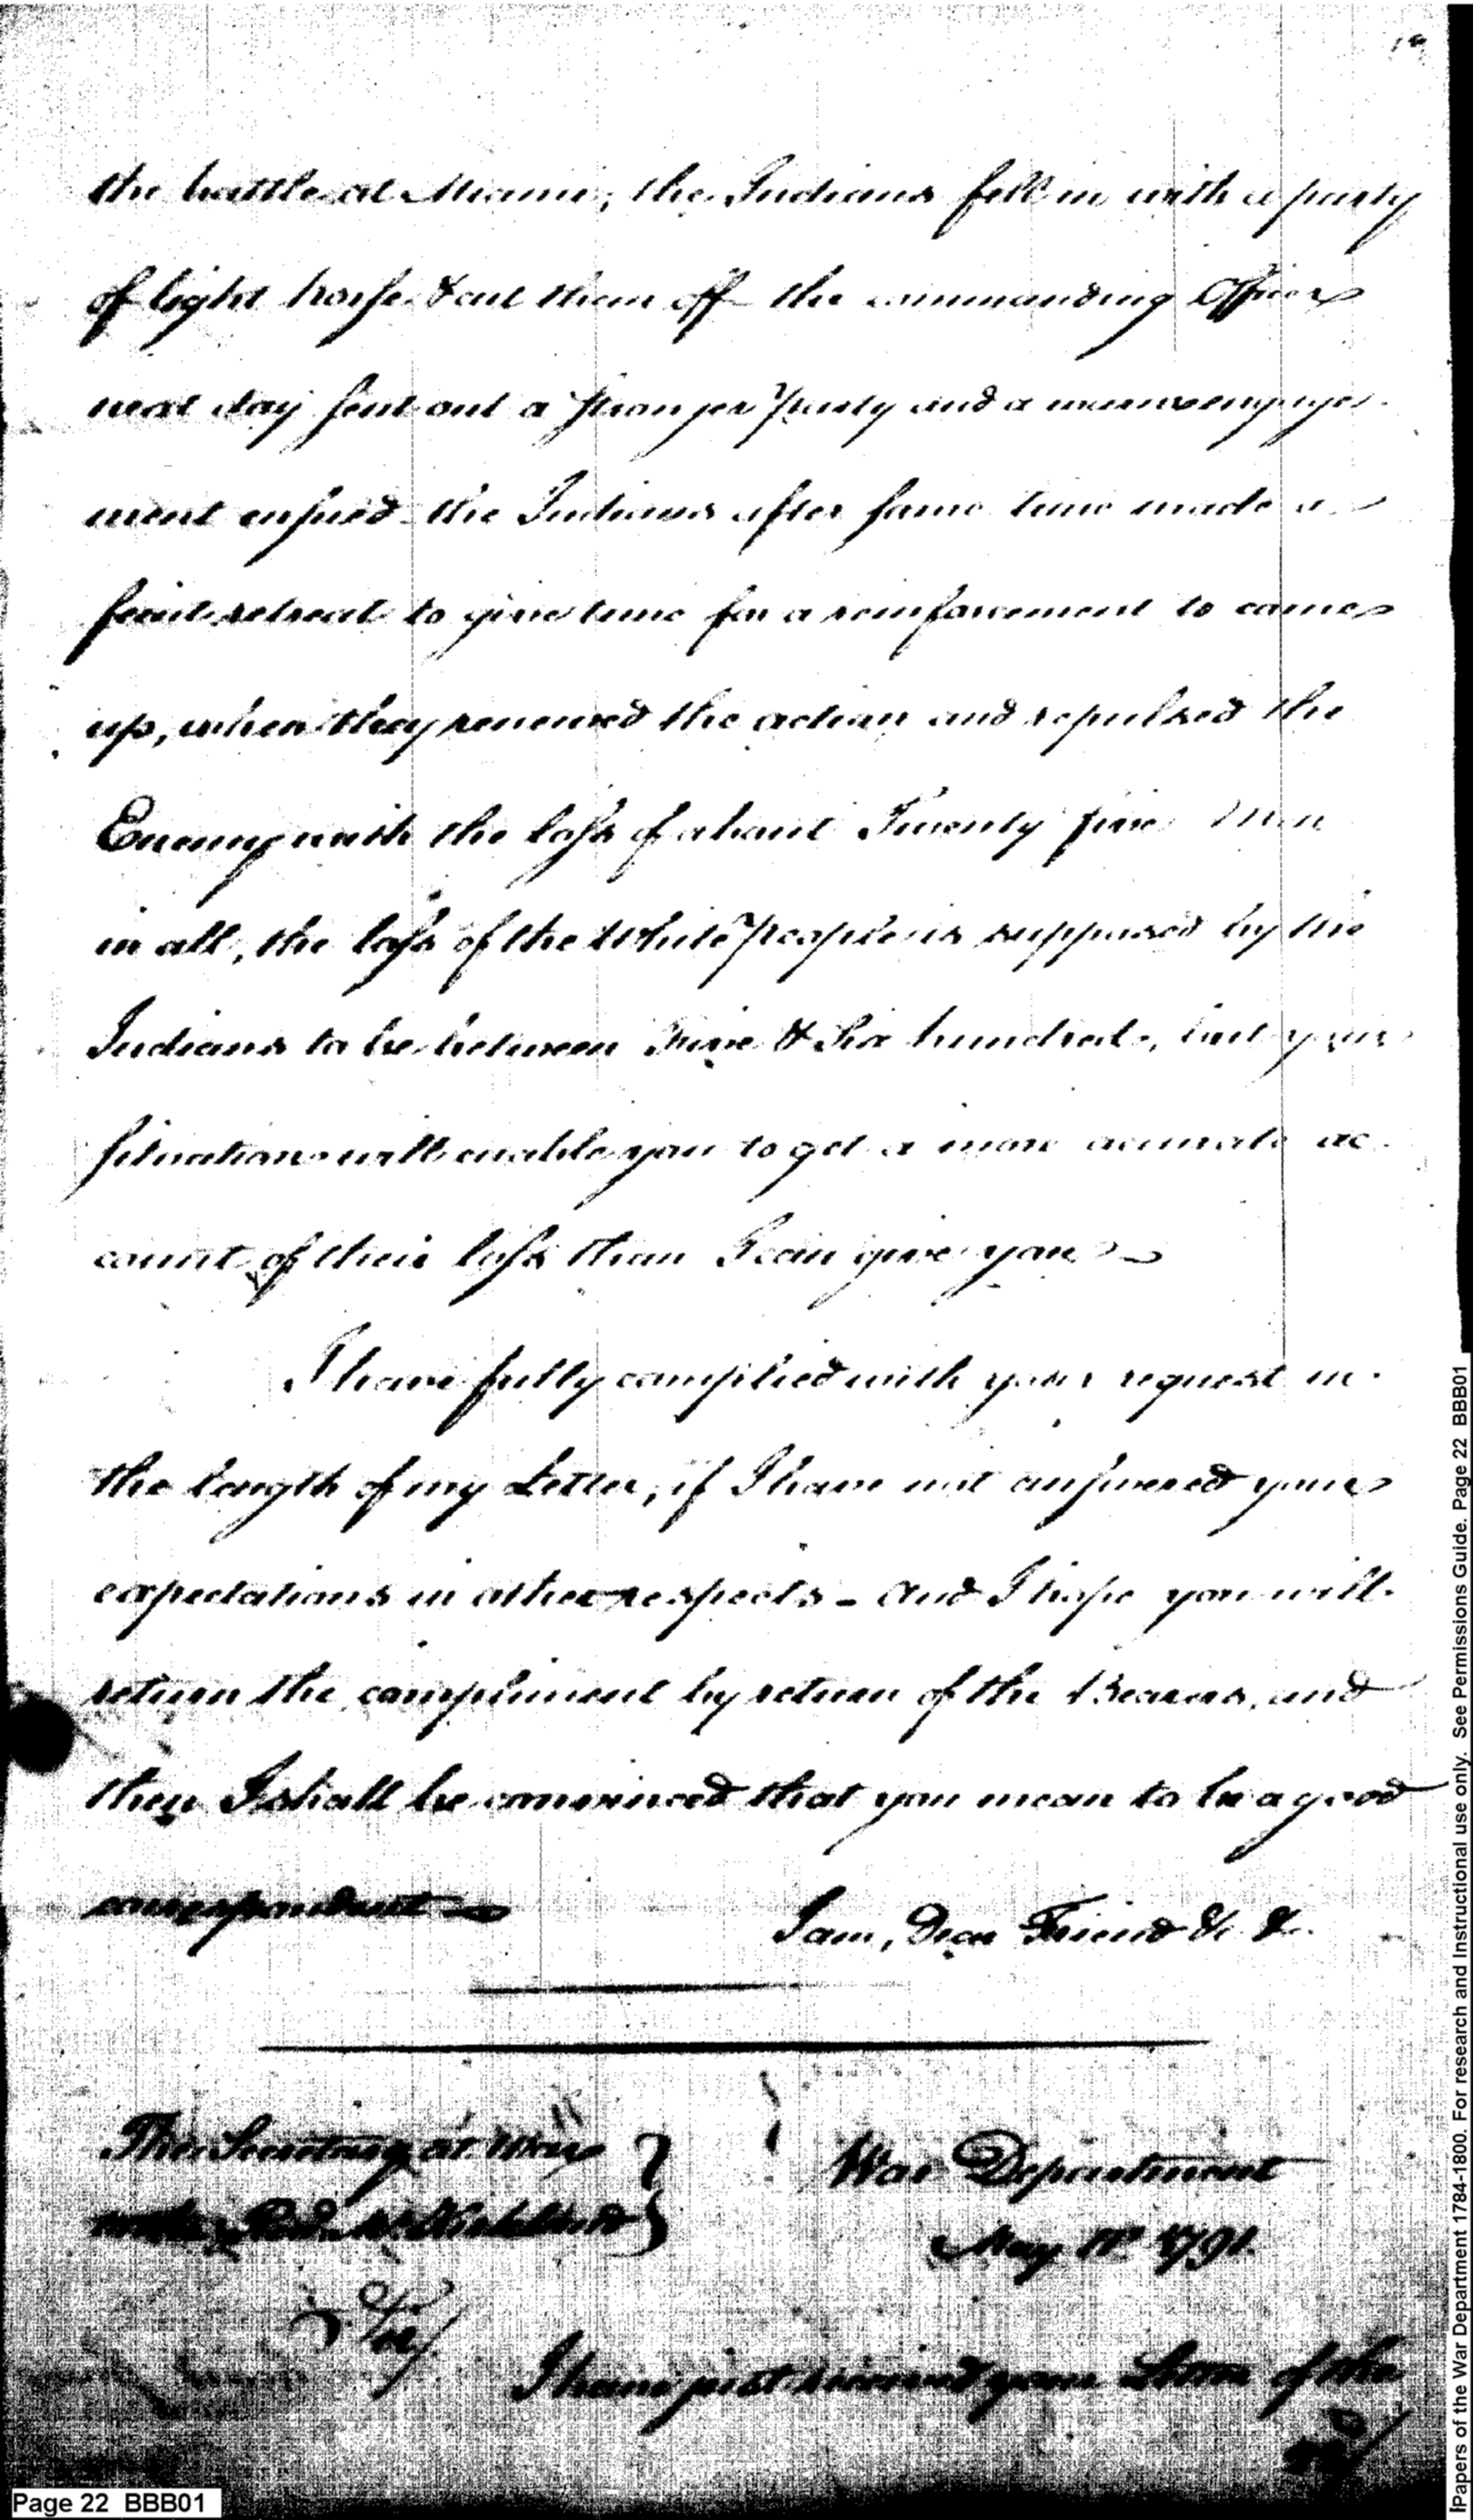 the battle at Miami; the Indians fell in with a party
of light horse & cut them off the commanding Officer
next day sent out a stronger party and a warm engage-
ment ensued the Indians after some time made a
feint retreat to give time for a reinforcement to come
up, when they renewed the action and repulsed the
Enemy with the loss of about Twenty five Men
in all, the loss of the White people is supposed by the
Indians to be between Five & Six hundred, but your
situation will enable you to get a more accurate ac-
count of their loss than I can give you
I have fully complied with your request in
the length of my Letter, if I have not answered your
expectations in other respects – And I hope you will
return the compliment by return of the Bearers, and
then I shall be convinced that you mean to be a good
correspondent
I am, Dear Friend &c &c.
The Secretary at War
to the Revd. Mr. Kirkland
War Department
May 11th 1791
I have just received your Letter of the
Page 22 BBB01
[Papers of the War Department 1784-1800. For research and Instructional use only. See Permissions Guide. Page 22 BBB01